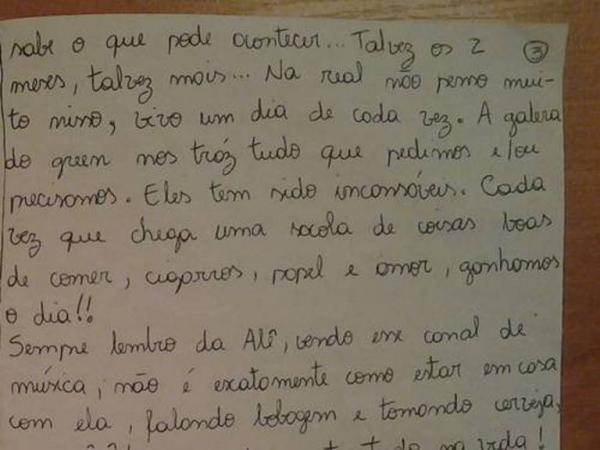 sabe o que pode acontecer... Talvez os 2 3
meses, talvez mais... Na real não penso mui-
to nisso, vivo um dia de cada vez. A galera
do green nos tráz tudo que pedimos e/ou
precisamos. Eles tem sido incansáveis. Cada
vez que chega uma sacola de coisas boas
de comer, cigarros, papel e amor, ganhamos
o dia!!
Sempre lembro da Alê, vendo esse canal de
música, não é exatamente como estar em casa
com ela, falando bobagem e tomando cerveja,
na vida!